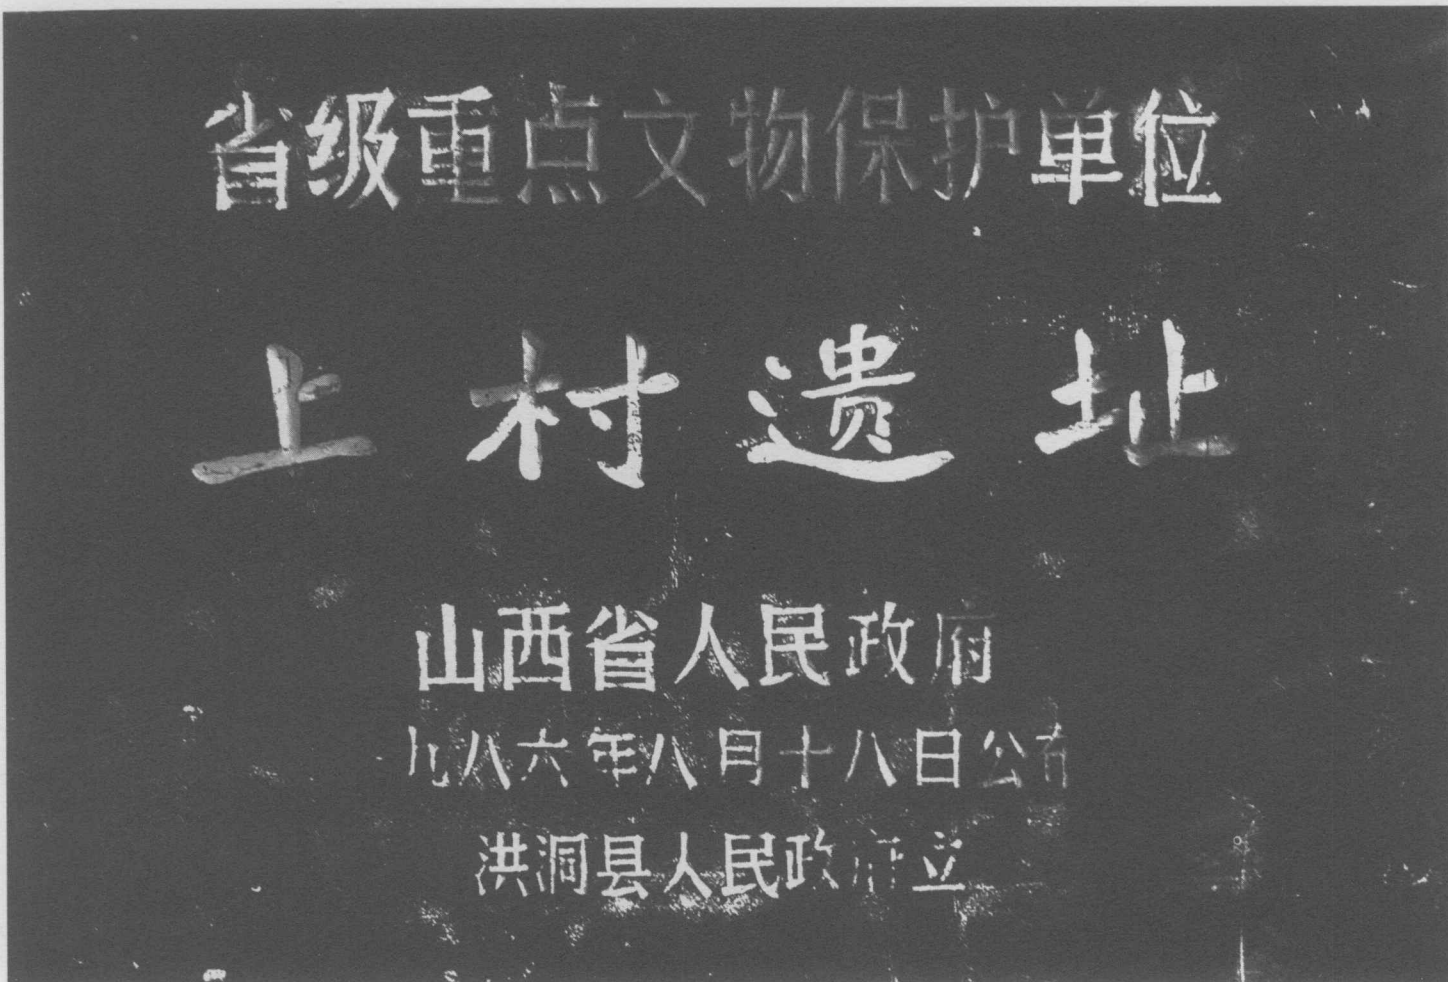 省级重点文物保护单位
上村遗址
山西省人民政府
九八六年八月十八日公布
洪洞县人民政府立